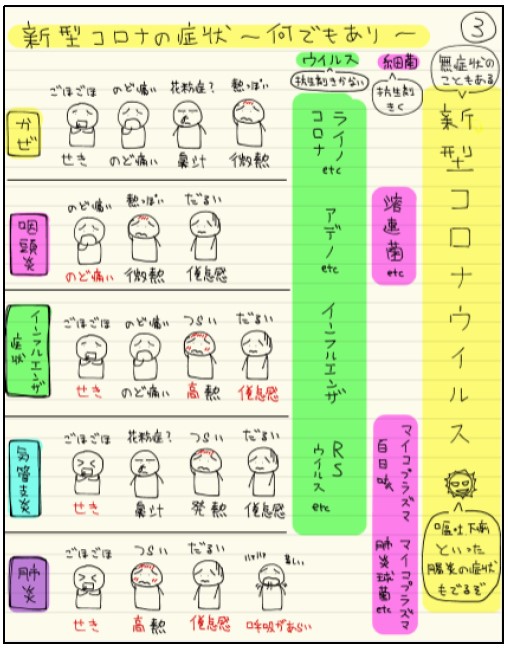 新型コロナの症状～何でもあり～
③
ウイルス
細菌
抗生剤きかない
抗生剤
きく
無症状の
こともある
かぜ
ごほごほ
のど痛い
花粉症?
熱っぽい
せき
のど痛い
鼻汁
微熱
ライノ
コロナ
etc
咽頭炎
のど痛い
熱っぽい
だるい
のど痛い
微熱
倦怠感
アデノ
etc
溶連菌
etc
インフルエンザ
症状
ごほごほ
のど痛い
つらい
だるい
せき
のど痛い
高熱
倦怠感
インフルエンザ
気管支炎
ごほごほ
花粉症?
つらい
だるい
せき
鼻汁
発熱
倦怠感
RS
ウイルス
etc
マイコプラズマ
百日咳
肺炎
ごほごほ
つらい
だるい
ハァハァ
苦しい
せき
高熱
倦怠感
呼吸があらい
マイコプラズマ
肺炎球菌etc
新型コロナウイルス
嘔吐下痢
といった
腸炎の症状
もでるぞ